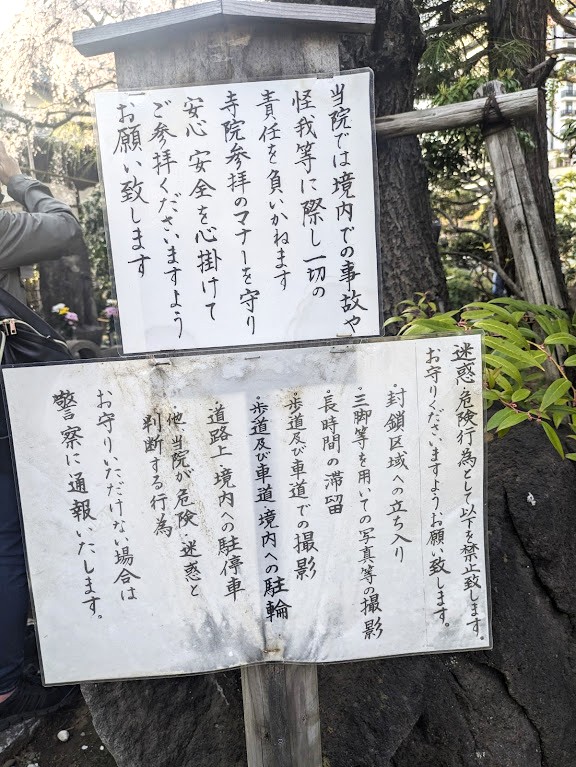 当院では境内での事故や
怪我等に際し一切の
責任を負いかねます
寺院参拝のマナーを守り
安心 安全を心掛けて
ご参拝くださいますよう
お願い致します
迷惑・危険行為として以下を禁止致します。
お守りくださいますようお願い致します。
・封鎖区域への立ち入り
・三脚等を用いての写真等の撮影
・長時間の滞留
・歩道及び車道での撮影
・歩道及び車道・境内への駐輪
・道路上・境内への駐停車
・他、当院が危険・迷惑と
判断する行為
お守りいただけない場合は
警察に通報いたします。